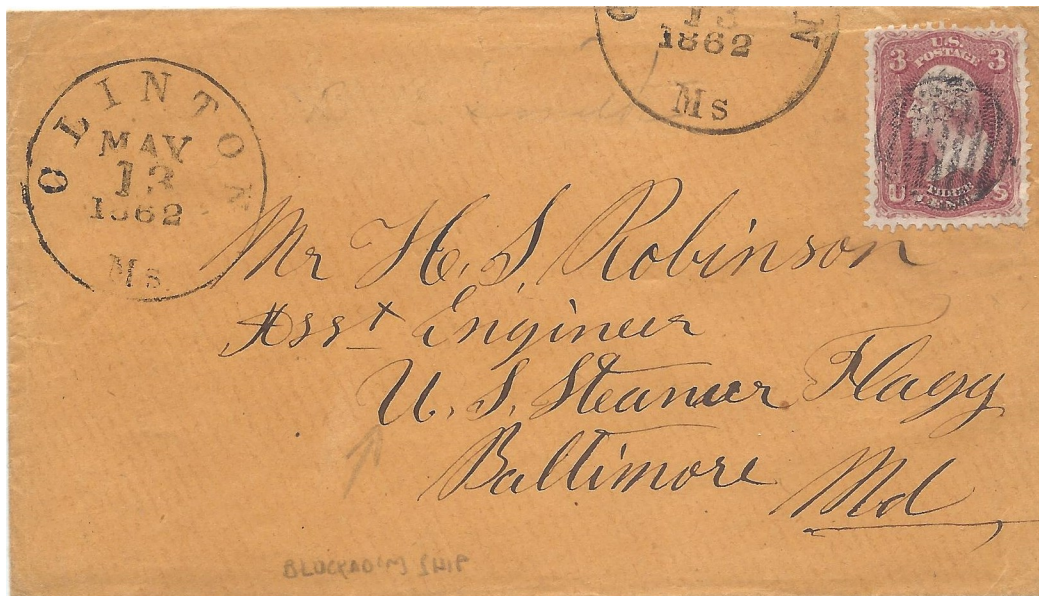 CLINTON
MAY
13
1862
Ms
13
1862
Ms
U.S.
POSTAGE
3 3
U S
THREE
CENTS
Mr H. S. Robinson
Asst Engineer
U. S. Steamer Flagg
Baltimore Md
BLOCKADI'G SHIP